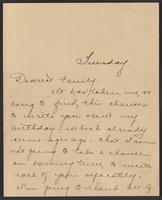 Tuesday.
Dearest Family.
It has taken me so
long to find the chance
to write you about my
birthday - which already
seems ages ago. That I am
not going to take a chance
on having time to write
each of you separately.
I'm going to thank all of